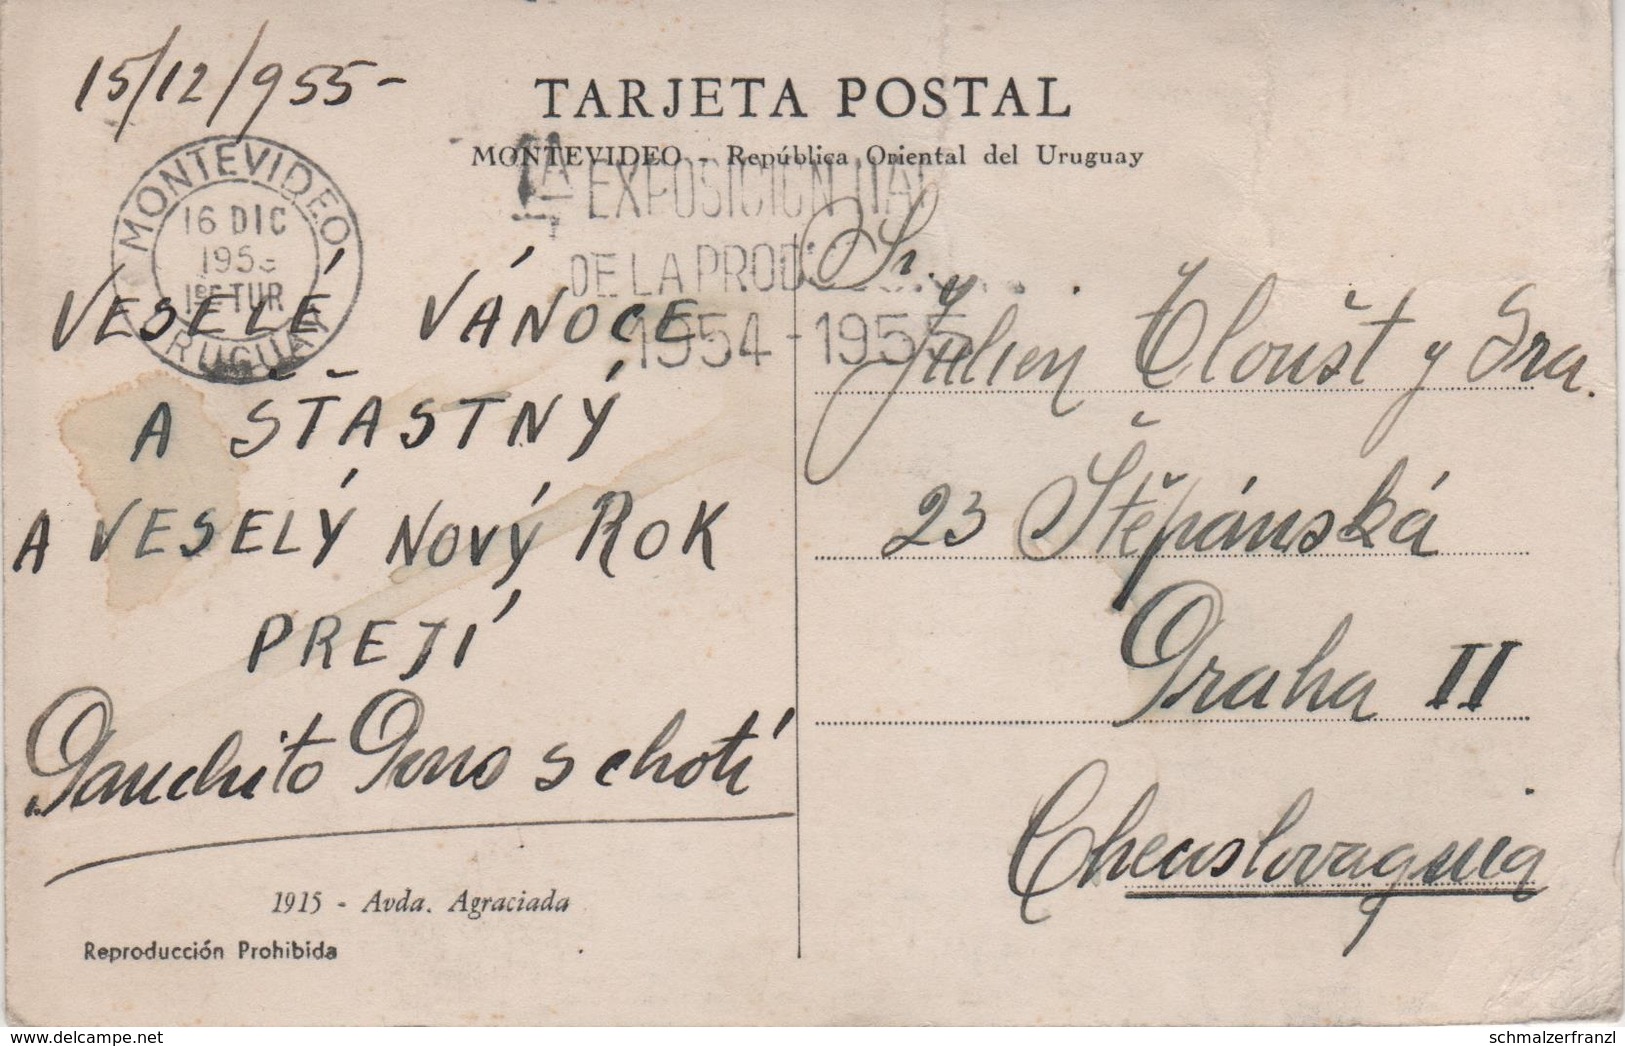 15/12/955-
TARJETA POSTAL
MONTEVIDEO - República Oriental del Uruguay
MONTEVIDEO
16 DIC
195
1er TUR
URUGUAY
1ª EXPOSICION ITAL
DE LA PROD
1954-1955
VESELÉ VÁNOCE
A ŠŤASTNÝ
A VESELÝ NOVÝ ROK
PREJÍ
Panchito s chotí
1915 - Avda. Agraciada
Reproducción Prohibida
Sr.
Julien Tloušt y Sra.
23 Štěpánská
Praha II
Checoslovaquia
delcampe.net
schmalzerfranzl